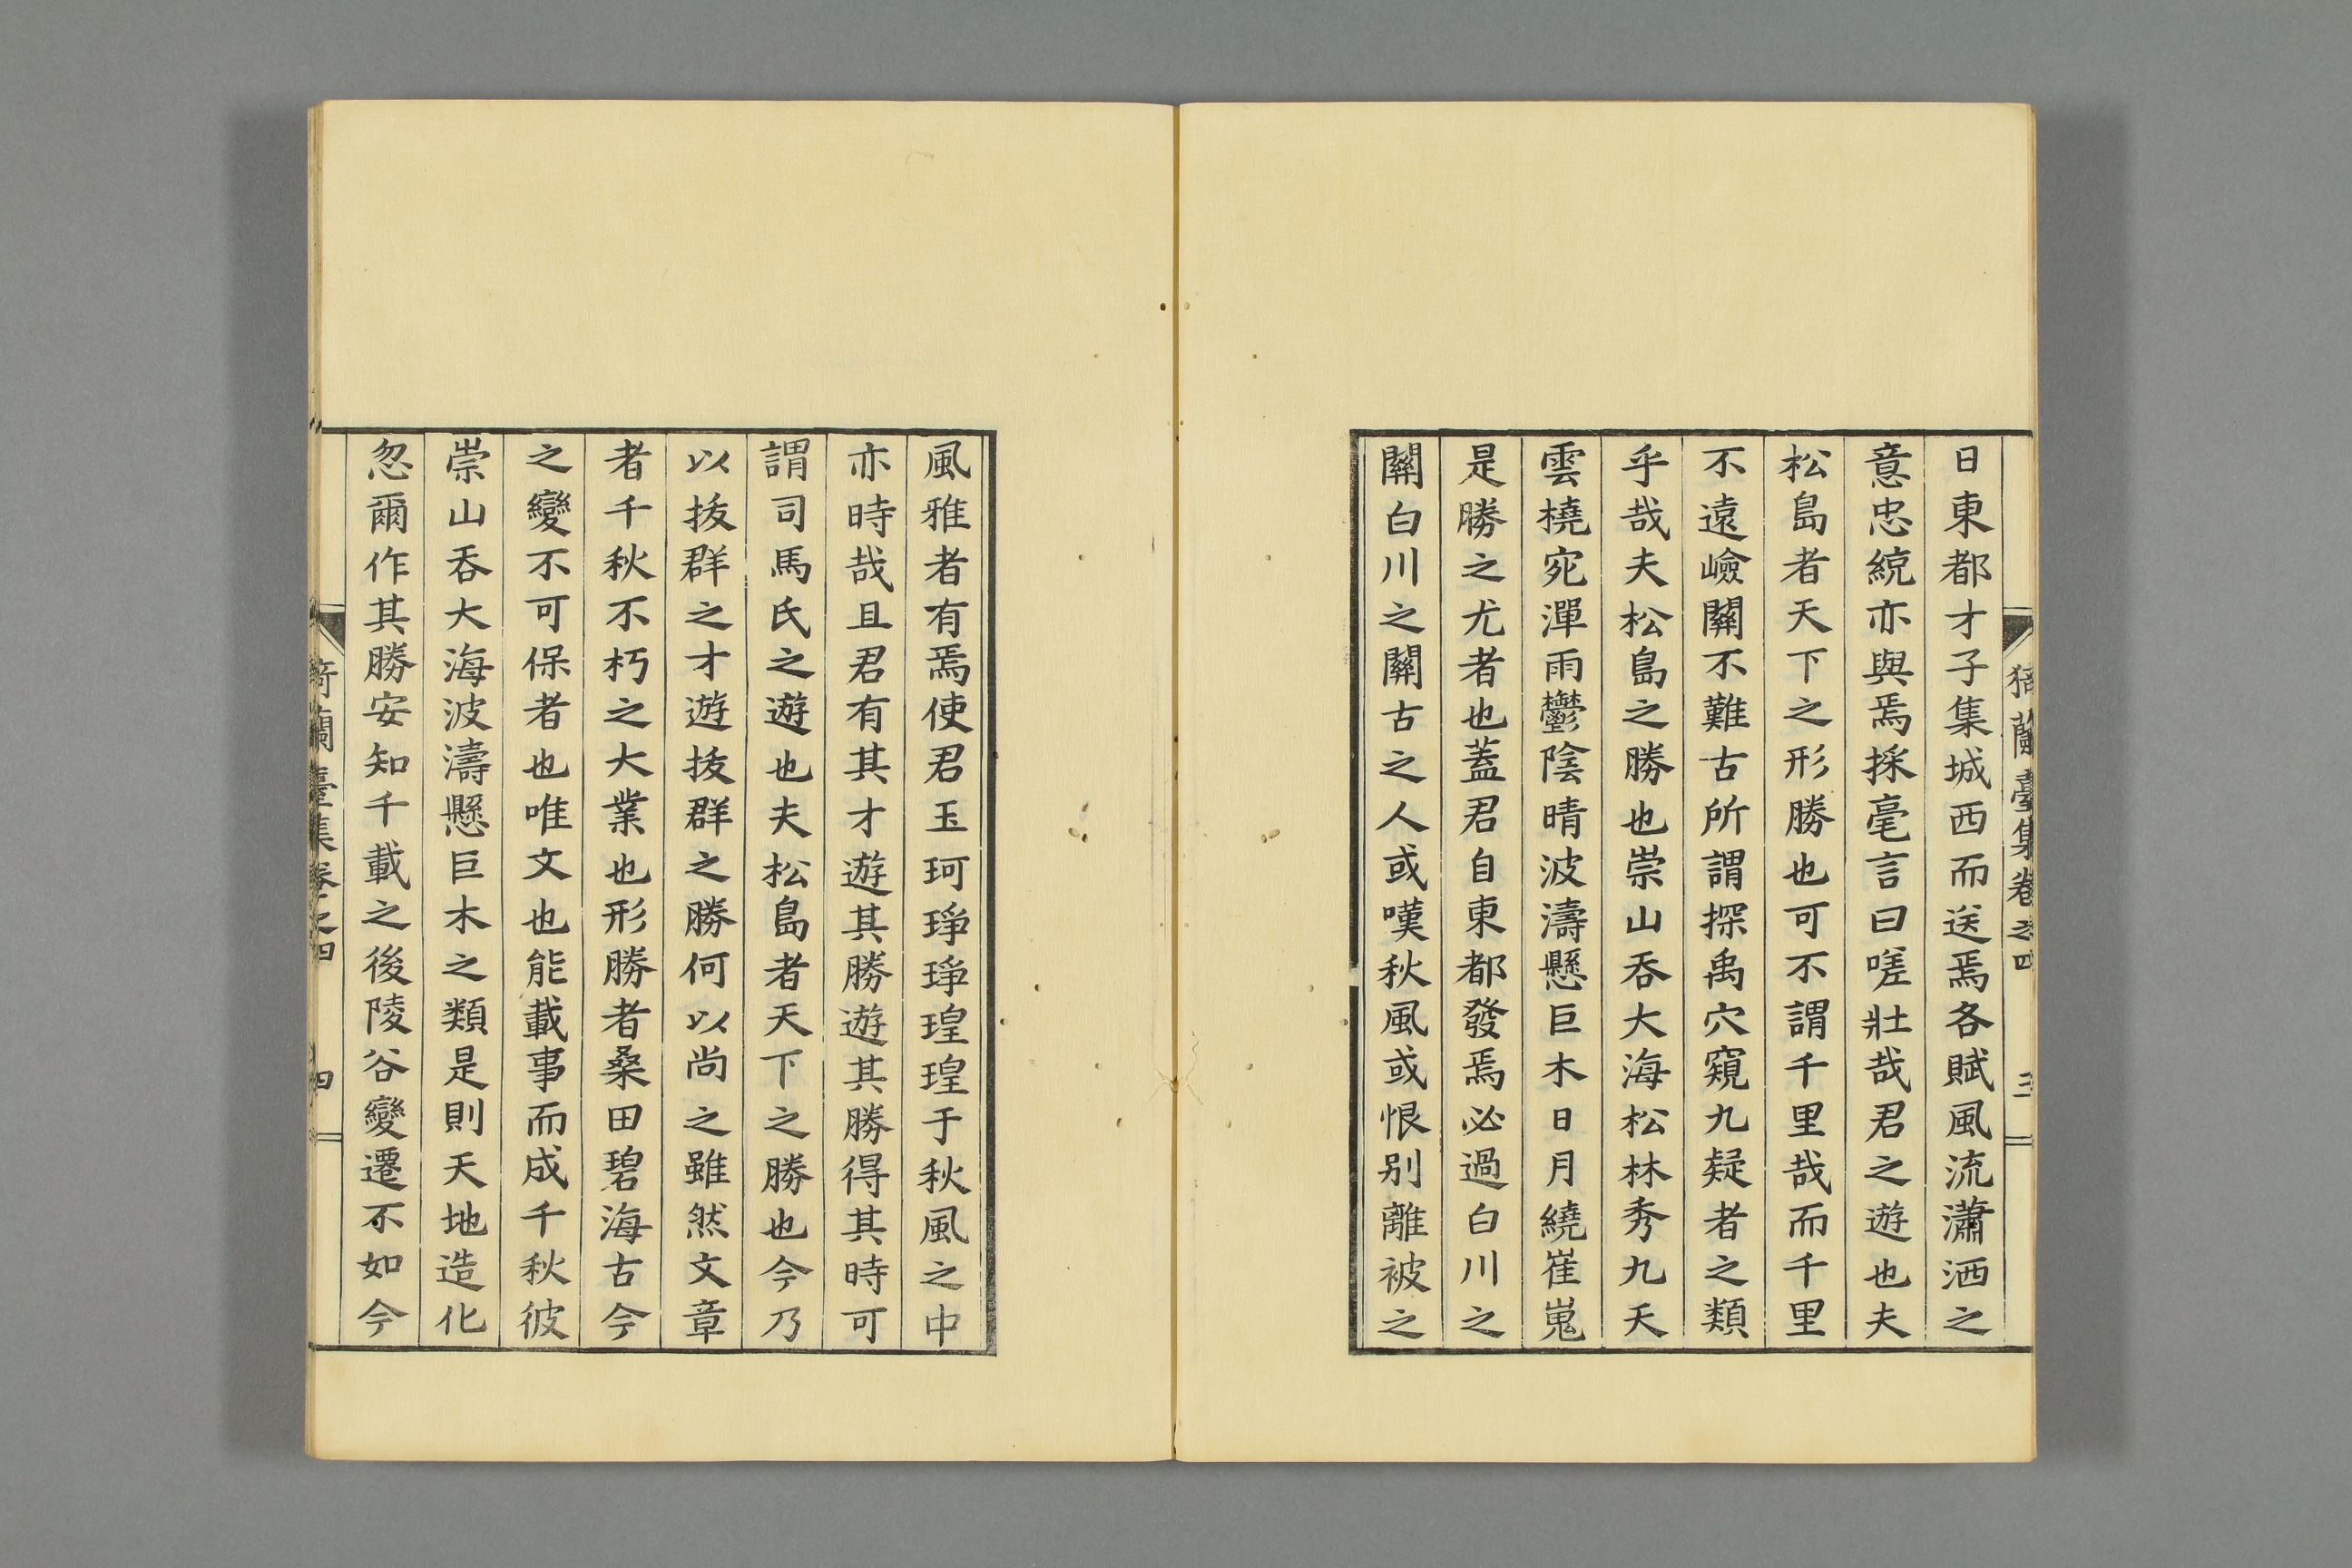 日東都才子集城西而送焉各賦風流瀟洒之
意忠統亦與焉採毫言曰嗟壯哉君之遊也夫
松島者天下之形勝也可不謂千里哉而千里
不遠嶮關不難古所謂探禹穴窺九疑者之類
乎哉夫松島之勝也崇山吞大海松林秀九天
雲橈宛渾雨鬱陰晴波濤懸巨木日月繞崔嵬
是勝之尤者也蓋君自東都發焉必過白川之
關白川之關古之人或嘆秋風或恨別離被之
風雅者有焉使君玉珂琤琤瑝瑝于秋風之中
亦時哉且君有其才遊其勝遊其勝得其時可
謂司馬氏之遊也夫松島者天下之勝也今乃
以拔群之才遊拔群之勝何以尚之雖然文章
者千秋不朽之大業也形勝者桑田碧海古今
之變不可保者也唯文也能載事而成千秋彼
崇山吞大海波濤懸巨木之類是則天地造化
忽爾作其勝安知千載之後陵谷變遷不如今
猗蘭臺集卷之四 四